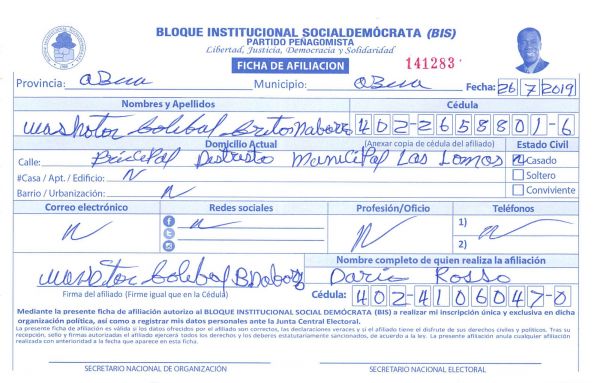 BLOQUE INSTITUCIONAL SOCIALDEMÓCRATA (BIS)
PARTIDO PEÑAGOMISTA
Libertad, Justicia, Democracia y Solidaridad
FICHA DE AFILIACION
141283
Provincia: Municipio: Fecha: 26 7 2019
Nombres y Apellidos Cédula
402-2658801-6
Domicilio Actual (Anexar copia de cédula del afiliado) Estado Civil
Calle: Distrito Municipal Las Lomas Casado
#Casa / Apt. / Edificio: N Soltero
Barrio / Urbanización: N Conviviente
Correo electrónico Redes sociales Profesión/Oficio Teléfonos
N N N 1) N
2)
Nombre completo de quien realiza la afiliación
Dario Rosso
Firma del afiliado (Firme igual que en la Cédula) Cédula: 402-4106047-0
Mediante la presente ficha de afiliación autorizo al BLOQUE INSTITUCIONAL SOCIAL DEMÓCRATA (BIS) a realizar mi inscripción única y exclusiva en dicha
organización política, así como a registrar mis datos personales ante la Junta Central Electoral.
La presente ficha de afiliación es válida si los datos ofrecidos por el afiliado son correctos, las declaraciones veraces y si el afiliado tiene el disfrute de sus derechos civiles y políticos. Tras su
recepción, sello y firmas autorizadas el afiliado ejercerá todos los derechos y los deberes estatutariamente sancionados, de acuerdo a la ley. La presente afiliación anula cualquier afiliación
realizada con anterioridad a la fecha que aparece en esta ficha.
SECRETARIO NACIONAL DE ORGANIZACIÓN SECRETARIO NACIONAL ELECTORAL